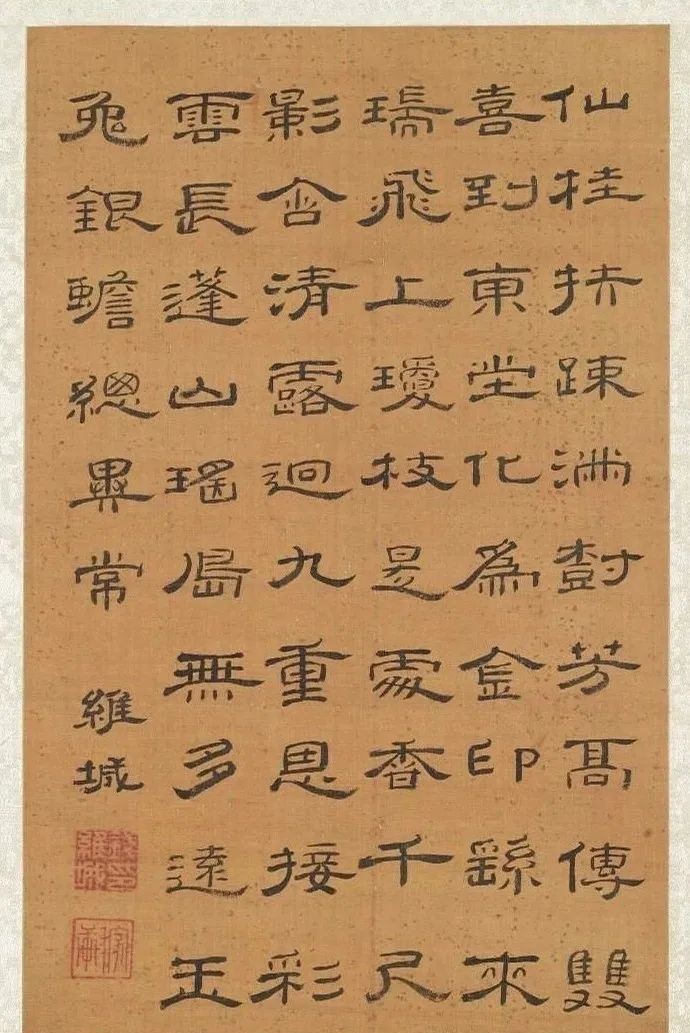 仙桂扶踈滿樹芳髙傳雙
喜到東堂化為金印繇來
瑞飛上瓊枝是處香千尺
影含清露迥九重恩接彩
雲長蓬山瑤島無多遠玉
兔銀蟾總異常
維城